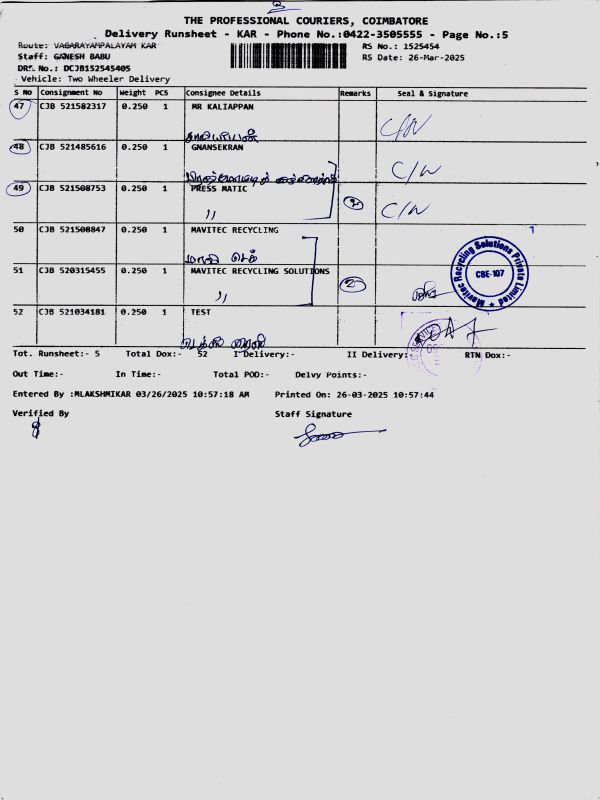 THE PROFESSIONAL COURIERS, COIMBATORE
Delivery Runsheet - KAR - Phone No.:0422-3505555 - Page No.:5
Route: VAGARAYAMPALAYAM KAR
RS No.: 1525454
Staff: GANESH BABU
RS Date: 26-Mar-2025
DRS No.: DCJB152545405
Vehicle: Two Wheeler Delivery
S NO Consignment No Weight PCS Consignee Details Remarks Seal & Signature
47 CJB 521582317 0.250 1 MR KALIAPPAN
C/N
48 CJB 521485616 0.250 1 GNANSEKRAN
C/N
49 CJB 521508753 0.250 1 PRESS MATIC
" 2 C/N
50 CJB 521508847 0.250 1 MAVITEC RECYCLING
51 CJB 520315455 0.250 1 MAVITEC RECYCLING SOLUTIONS
" 2
Mavitec Recycling Solutions Private Limited
CBE-107
52 CJB 521034181 0.250 1 TEST
Tot. Runsheet:- 5 Total Dox:- 52 I Delivery:- II Delivery:- RTN Dox:-
Out Time:- In Time:- Total POD:- Delvy Points:-
Entered By :MLAKSHMIKAR 03/26/2025 10:57:18 AM Printed On: 26-03-2025 10:57:44
Verified By Staff Signature